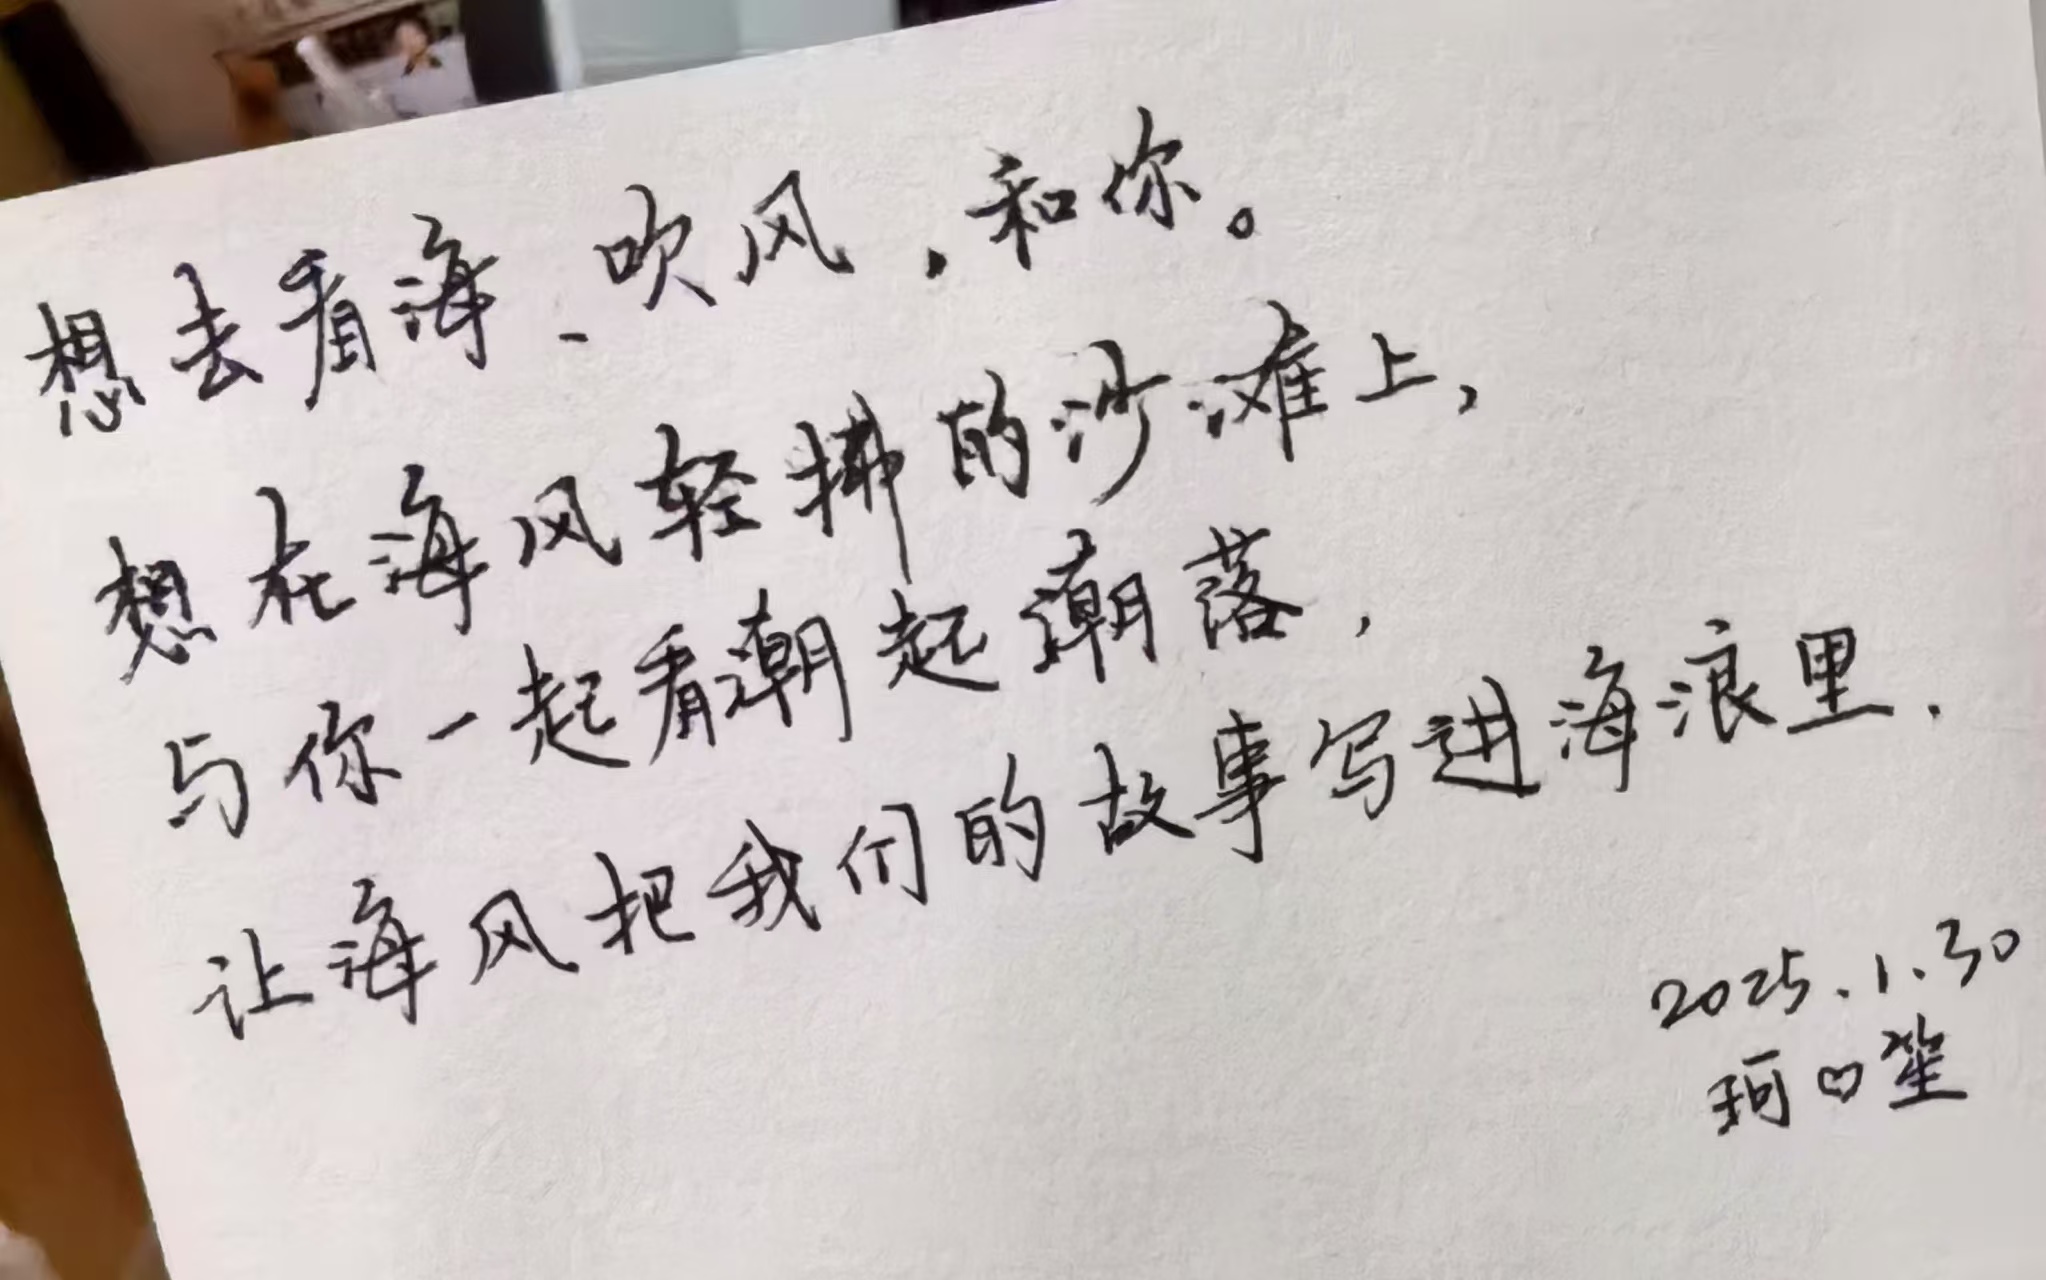 想去看海、吹风，和你。
想在海风轻拂的沙滩上，
与你一起看潮起潮落，
让海风把我们的故事写进海浪里.
2025.1.30
珂♡笙